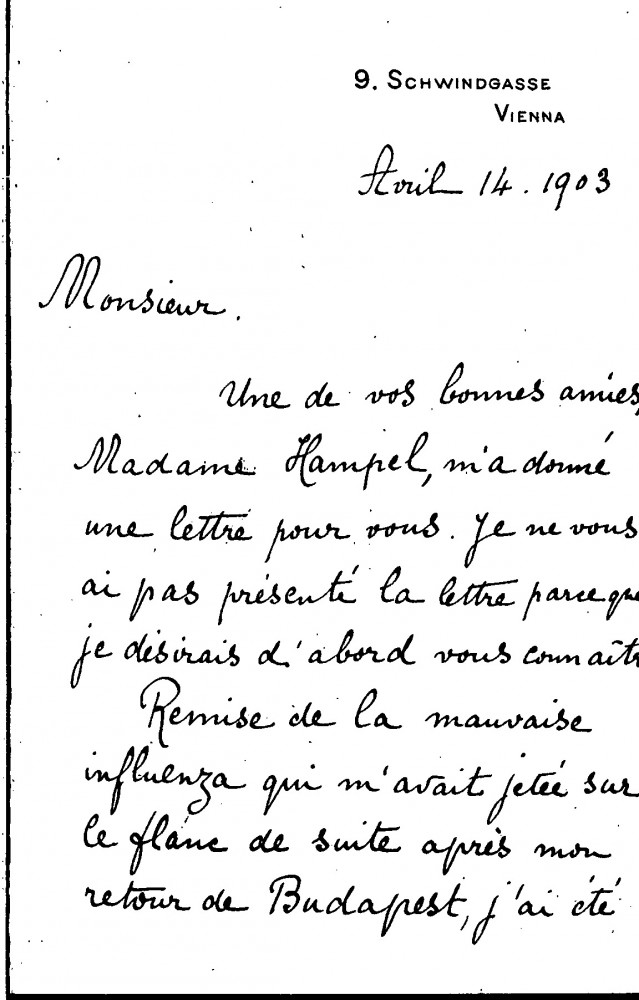 9. SCHWINDGASSE
VIENNA
Avril 14. 1903
Monsieur.
Une de vos bonnes amies,
Madame Hampel, m'a donné
une lettre pour vous. Je ne vous
ai pas présenté la lettre parce que
je désirais d'abord vous connaîtr
Remise de la mauvaise
influenza qui m'avait jetée sur
le flanc de suite après mon
retour de Budapest, j'ai été